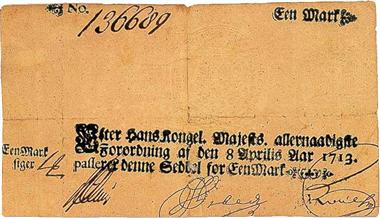 No. 136689
Een Mark
Efter Hans Kongel. Majests. allernaadigste
Forordning af den 8 Aprilis Aar 1713.
passerer denne Seddel for Een Mark
Een Mark
siger